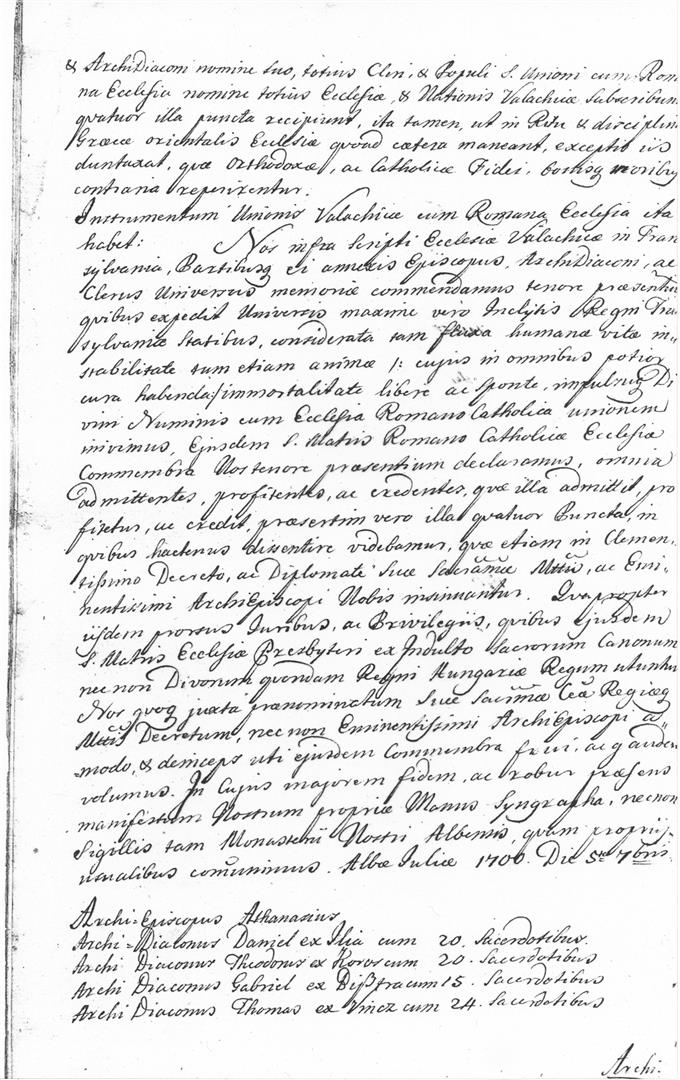 & ArchiDiaconi nomine suo, totius Cleri, & Populi S. Unioni cum Roma
na Ecclesia nomine totius Ecclesiæ, & Nationis Valachicæ subscribunt
qvatuor illa puncta recipiunt, ita tamen, ut in Ritu & disciplina
Græcæ orientalis Ecclesiæ qvoad cætera maneant, exceptis iis
duntaxat, qvæ Orthodoxæ, ac Catholicæ Fidei, bonisq moribus
contraria reperirentur.
Instrumentum Unionis Valachicæ cum Romana Ecclesia ita
habet: Nos infra scripti Ecclesiæ Valachicæ in Tran
sylvania, Partibusq ei annexis Episcopus, ArchiDiaconi, ac
Clerus Universus memoriæ commendamus tenore præsentium
qvibus expedit Universis maxime vero Inclytis Regni Tran
sylvaniæ Statibus, considerata tam fluxa humanæ vitæ in=
stabilitate tum etiam animæ /: cujus in omnibus potior
cura habenda:/ immortalitate libere ac sponte, impulsuq Di
vini Numinis cum Ecclesia Romano Catholica unionem
inivimus, Ejusdem S. Matris Romano Catholicæ Ecclesiæ
Commembra Nos tenore præsentium declaramus, omnia
admittentes, profitentes, ac credentes, qvæ illa admittit, pro
fitetur, ac credit, præsertim vero illa qvatuor Puncta, in
qvibus hactenus dissentire videbamur, qvæ etiam in Clemen=
tissimo Decreto, ac Diplomate Suæ Sacramæ Mttis, ac Emi=
nentissimi ArchiEpiscopi Nobis insinuantur. Qvapropter
iisdem prorsus Juribus, ac Privilegiis, qvibus ejusdem
S. Matris Ecclesiæ Presbyteri ex Indulto Sacrorum Canonum
nec non Divorum qvondam Regni Hungariæ Regum utuntur
Nos qvoq juxta prænominatum Suæ Sacrmæ Cæ Regiæq
Mttis Decretum, nec non Eminentissimi ArchiEpiscopi a=
=modo, & deinceps uti ejusdem Commembra frui, ac gaudere
volumus. In Cujus majorem fidem, ac robur præsens
manifestum Nostrum propriæ Manus Syngrapha, necnon
Sigillis tam Monasterii Nostri Albensis, qvam propriis
usualibus comunimus. Albæ Juliæ 1700. Die 5ta 7bris
Archi=Episcopus Athanasius
Archi=Diaconus Daniel ex Ilia cum 20. Sacerdotibus.
Archi Diaconus Theodorus ex Koros cum 20. Sacerdotibus
Archi Diaconus Gabriel ex Dißtra cum 15. Sacerdotibus
Archi Diaconus Thomas ex Vincz cum 24. Sacerdotibus
Archi.